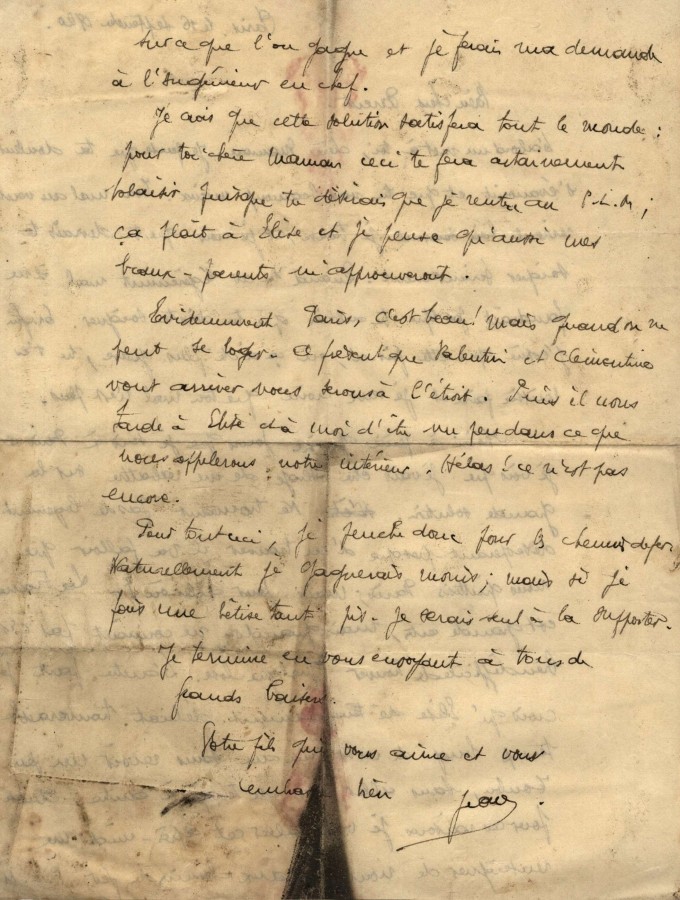 sur ce que l'on gagne et je ferais ma demande
à l'Ingénieur en chef.
Je crois que cette solution satisfera tout le monde :
pour toi chère Maman ceci te fera certainement
plaisir puisque tu désirais que je rentre au P.L.M ;
ça plaît à Elise et je pense qu'aussi mes
beaux-parents m'approuveront.
Evidemment Paris, c'est beau ! mais quand on ne
peut se loger. à présent que Valentin et Clémentine
vont arriver nous serons à l'étroit. Puis il nous
tarde à Elise et à moi d'être un peu dans ce que
nous appelerons notre intérieur. Hélas ! ce n'est pas
encore.
Pour tout ceci, je penche donc pour les chemins de fer,
Naturellement je gagnerais moins ; mais si je
fais une bêtise tant pis. je serais seul à la supporter.
Je termine en vous envoyant à tous de
grands baisers.
Votre fils qui vous aime et vous
embrasse bien